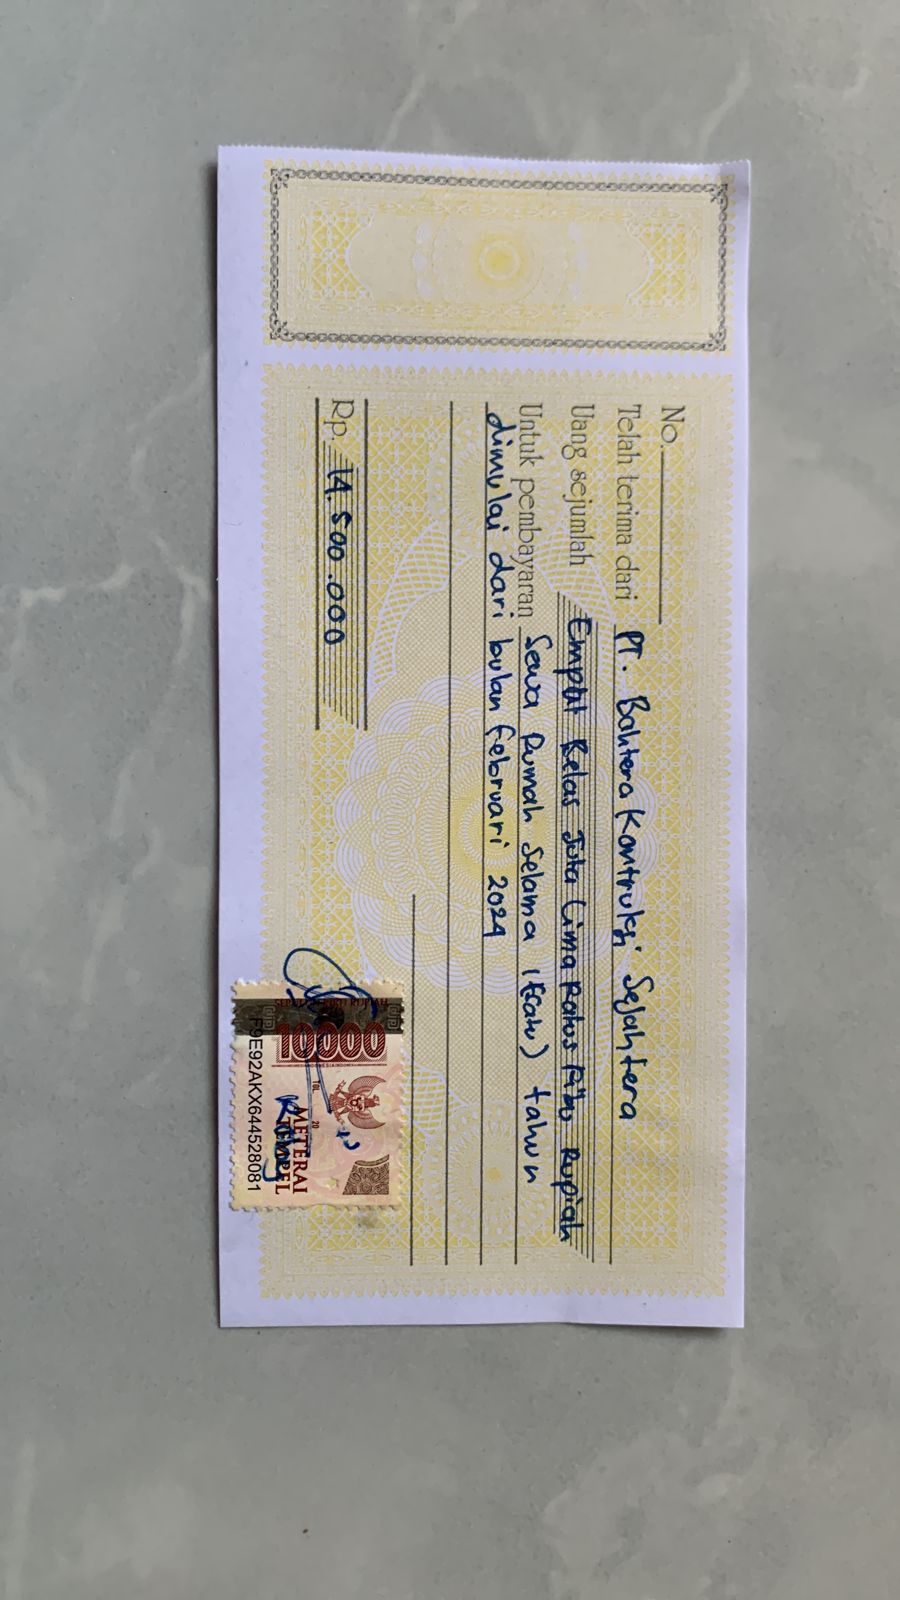 No.
Telah terima dari PT. Bahtera Kontruksi Sejahtera
Uang sejumlah Empat Belas Juta Lima Ratus Ribu Rupiah
Untuk pembayaran Sewa Rumah Selama 1 (Satu) tahun
dimulai dari bulan februari 2024
Rp. 14.500.000
SEPULUH RIBU RUPIAH
10000
TGL. 20
METERAI
TEMPEL
F9E92AKX644528081